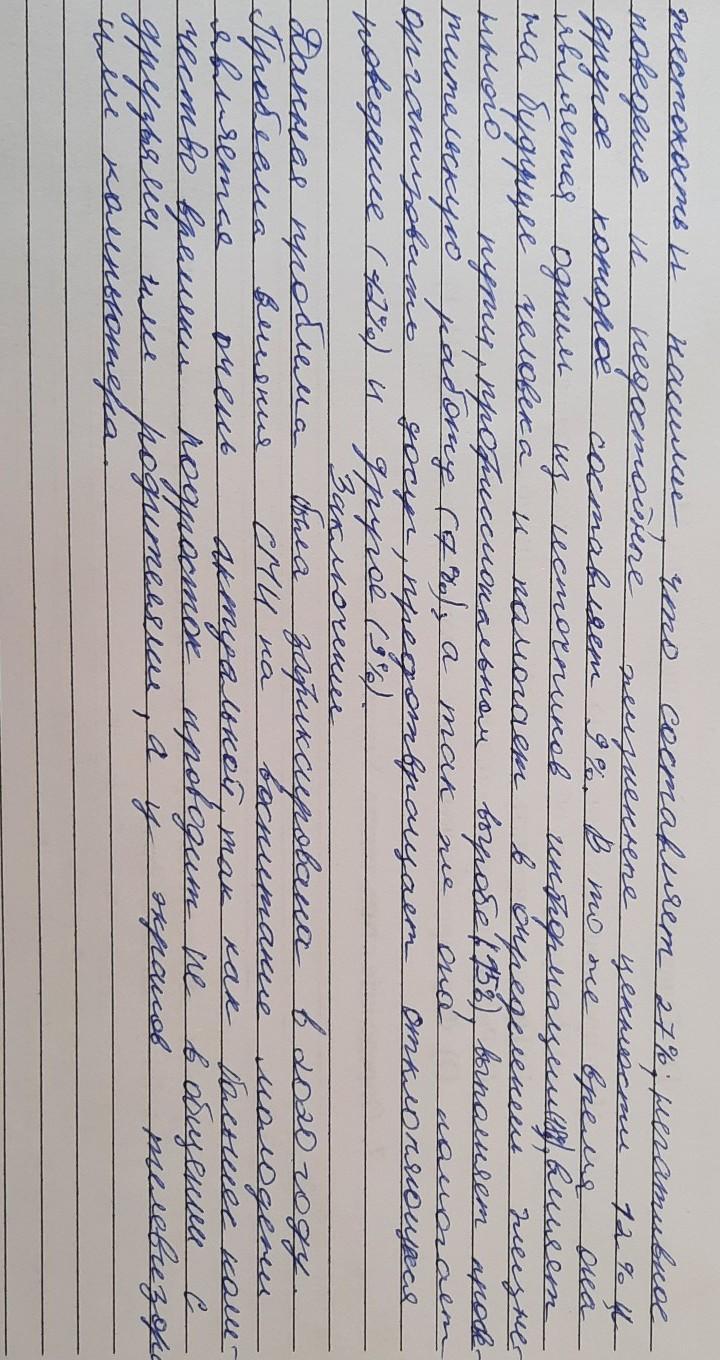 жестокость и насилие, что составляет 27%; негативное
поведение и недостойные жизненные ценности 12% и
другое которое составляет 9%. В то же время она
является одним из источников информации, влияет
на будущее человека и помогает в определении жизне-
нного пути, профессиональном выборе (15%), выполняет прос-
тительскую работу (7%), а так же она помогает
организовать досуг, предотвращает отклоняющееся
поведение (12%) и другое (9%).
Заключение
Данная проблема была зафиксирована в 2020 году.
Проблема влияния СМИ на воспитание молодежи
является очень актуальной, так как большее коли-
чество времени подросток проводит не в общении с
друзьями или родителями, а у экранов телевизора
или компьютера.